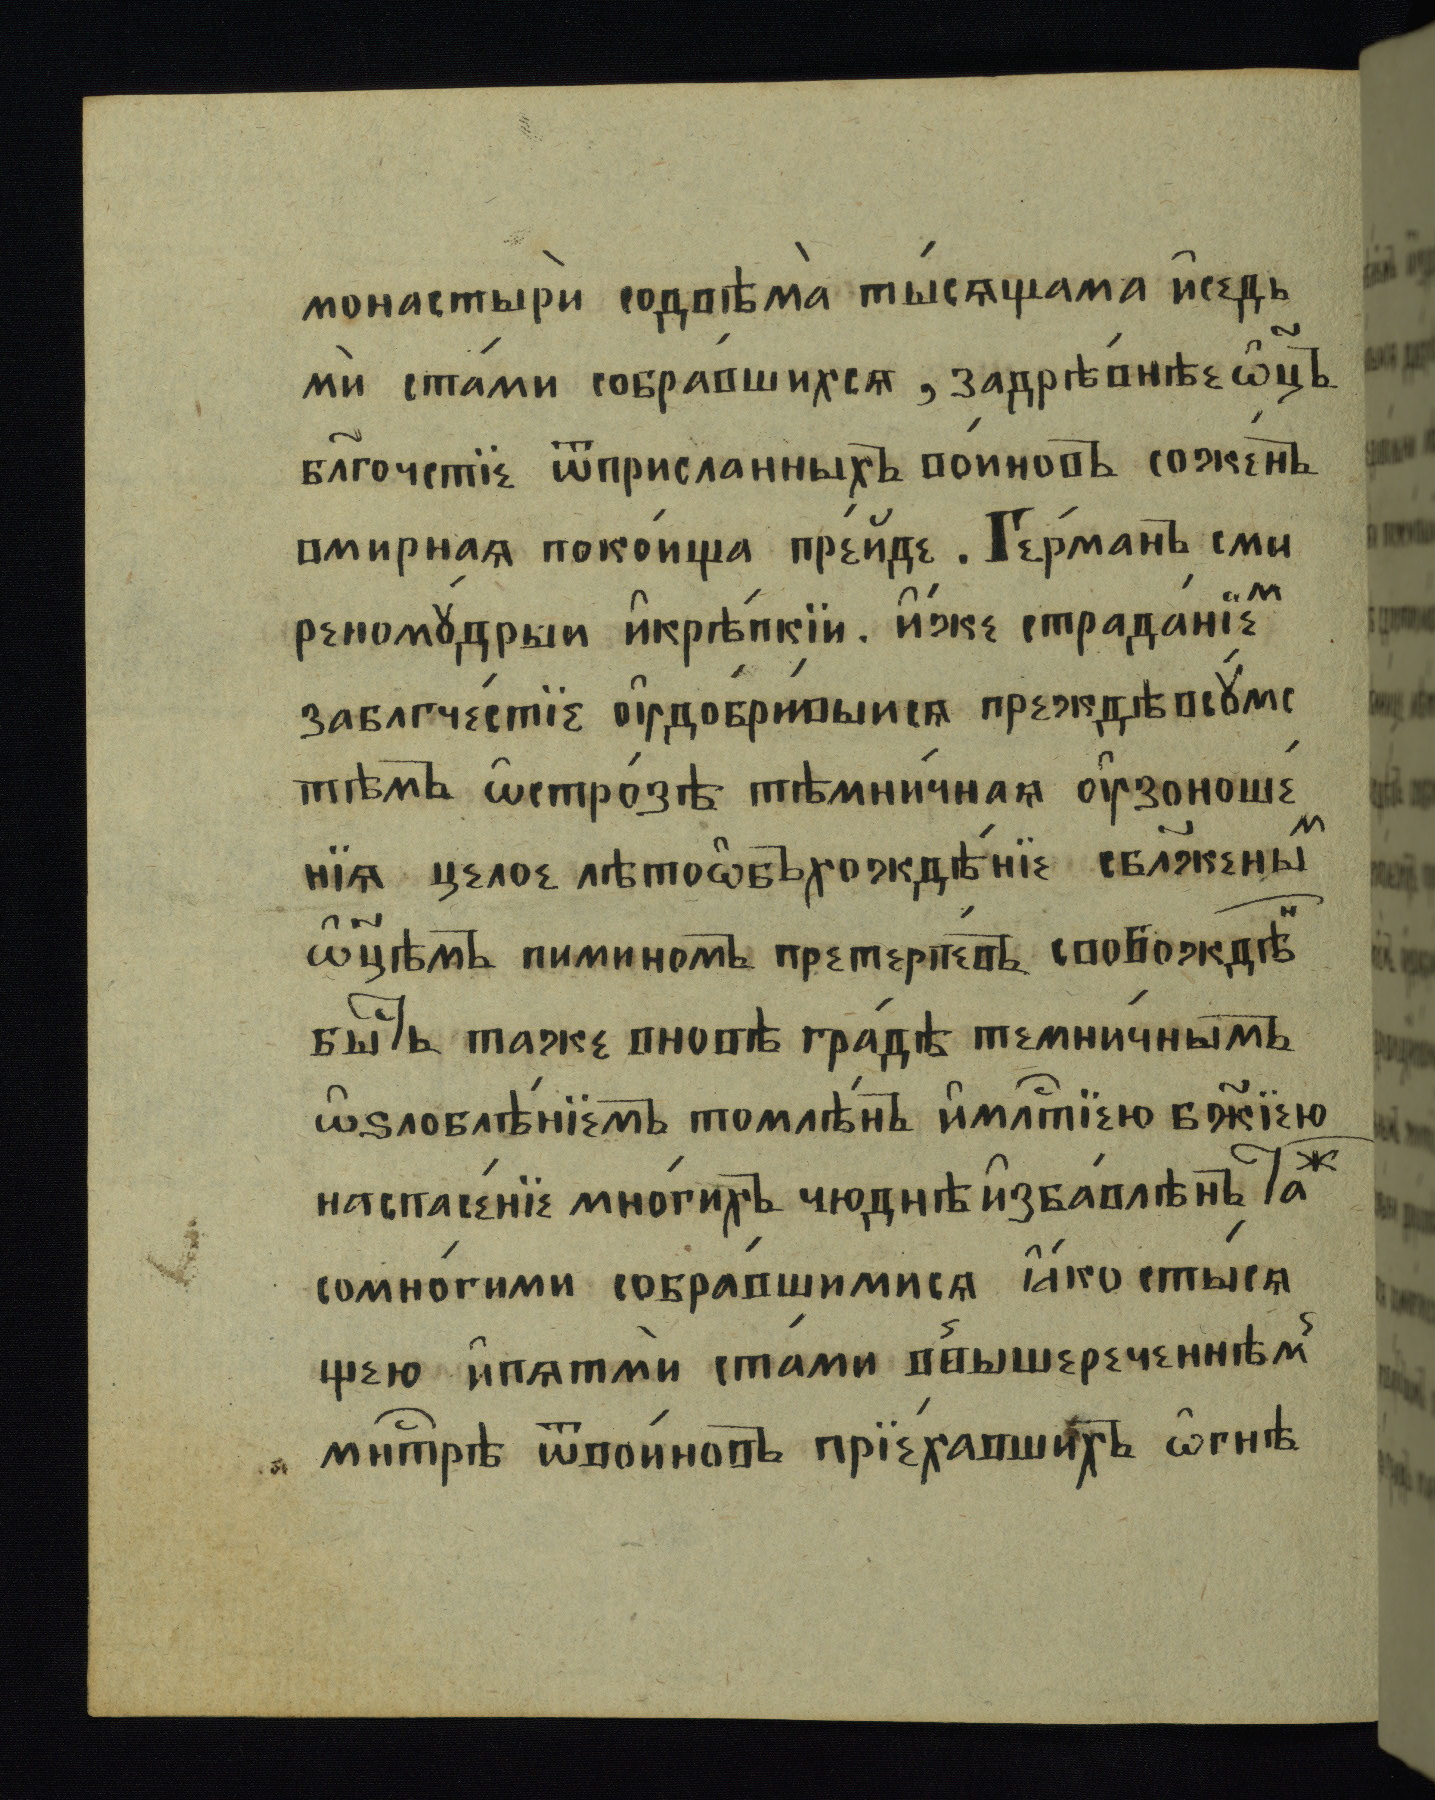 монастырѝ содвѣма̀ ты́сѧщама и҆седь
мѝ ста́ми собра́вшихсѧ , задрѣ́внѣе ѡ҆ц҃ъ
бл҃гочстїе ѿприсланныхъ во́иновъ сожє́нъ
вмирнаѧ поко́ища пре́йде . Ге́рманъ сми
реномꙋ́дрыи и҆крѣ́пкїи . и҆́же страда́нїеⷨ
заблгче́стїе ᲂу҆добри́выисѧ преждѣ всꙋ́мс
тѣмъ ѡ҆стро́зѣ тѣмни́чнаѧ ᲂу҆́зоноше́
нїѧ целое лѣтоѡ҆бъхождѣ́нїе сбл҃женыⷨ
ѡ҆ц҃ѣмъ пимином̾ъ претерпе́въ свобождѣⷩ
быⷭ҇ть таже вновѣ гра́дѣ темни́чнымъ
ѡ҆ѕлоблѣ́нїемъ томлѣ́нъ и҆млⷭ҇тїею бж҃їею
наспасе́нїе мно́гихъ чюднѣ и҆зба́влѣнъ Таⷤ
сомно́гими собра́вшимисѧ ꙗ҆́ко сты́сѧ
щею и҆пѧтмѝ ста́ми в̾вышереченнѣм̾
мнⷭ҇трѣ ѿвои́новъ прїе́хавшихъ ѡ҆гнѣ